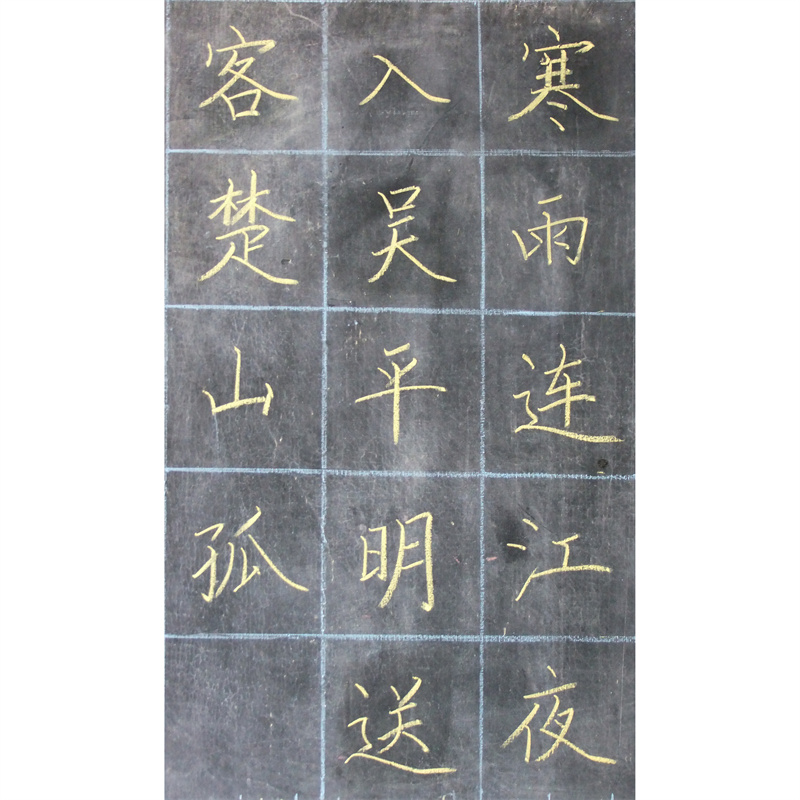 寒雨连江夜
入吴平明送
客楚山孤